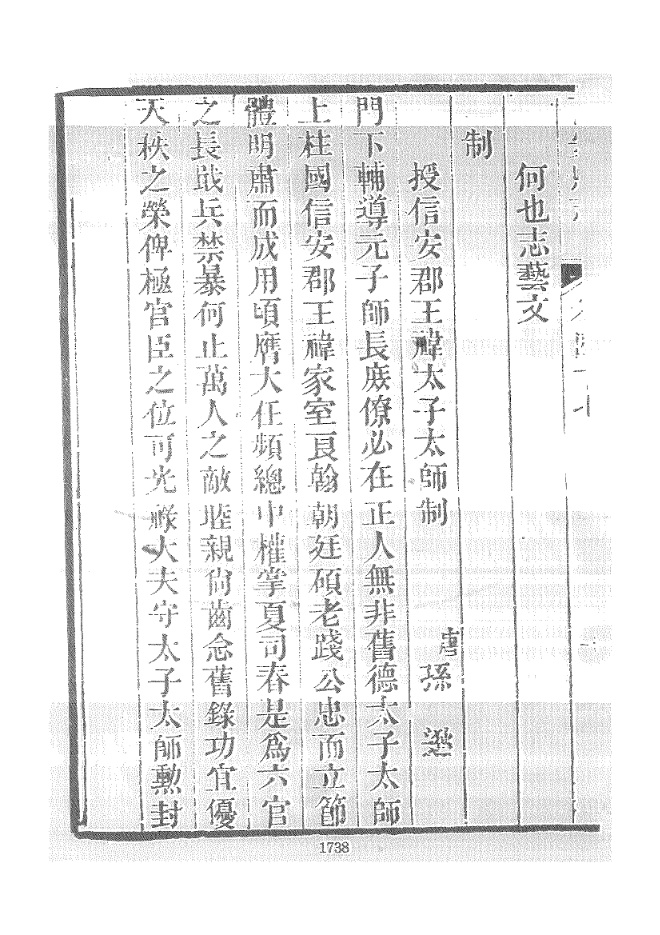 何也志藝文
制
授信安郡王禕太子太師制
唐孫逖
門下輔導元子師長庶僚必在正人無非舊德太子太師
上柱國信安郡王禕家室良翰朝廷碩老踐公忠而立節
體明肅而成用頃膺大任頻總中權掌夏司春是爲六官
之長戢兵禁暴何止萬人之敵睦親尙齒念舊錄功宜優
天秩之榮俾極官臣之位可光祿大夫守太子太師勳封
1738